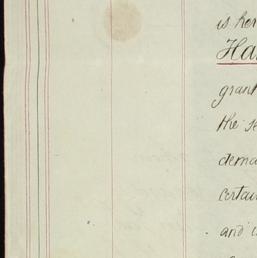 is her
Ha
grant
the
dema
certai
and